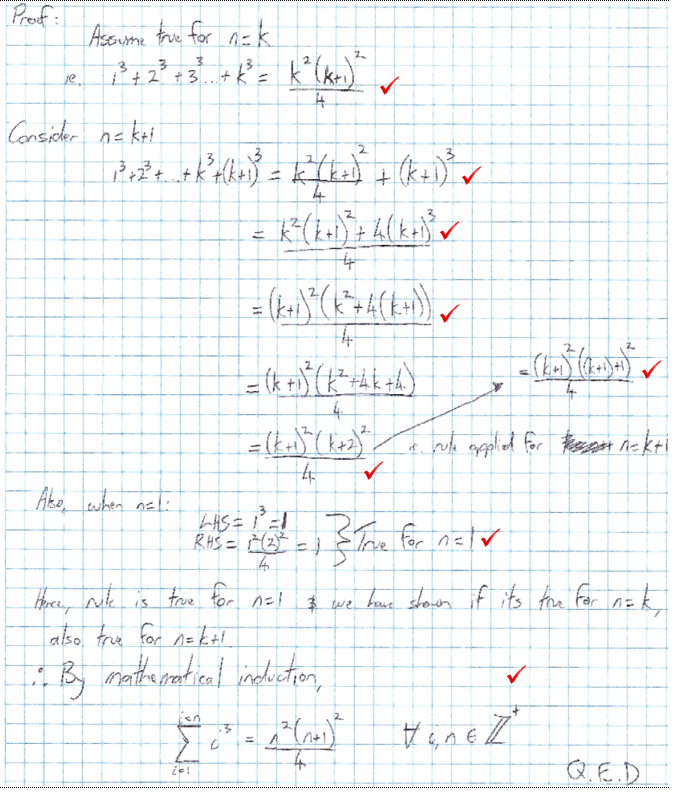 Proof:
Assume true for n=k
ie. 1³ + 2³ + 3³... + k³ = k²(k+1)²/4
Consider n=k+1
1³+2³+...+k³+(k+1)³ = k²(k+1)²/4 + (k+1)³
= (k²(k+1)² + 4(k+1)³)/4
= (k+1)²(k²+4(k+1))/4
= (k+1)²(k²+4k+4)/4
= (k+1)²((k+1)+1)²/4
= (k+1)²(k+2)²/4
ie. rule applied for n=k+1
Also, when n=1:
LHS = 1³ = 1
RHS = 1²(2)²/4 = 1 } True for n=1
Hence, rule is true for n=1 & we have shown if its true for n=k,
also true for n=k+1
∴ By mathematical induction,
∑_{i=1}^{i=n} i³ = n²(n+1)²/4 ∀ i,n ∈ ℤ⁺
Q.E.D